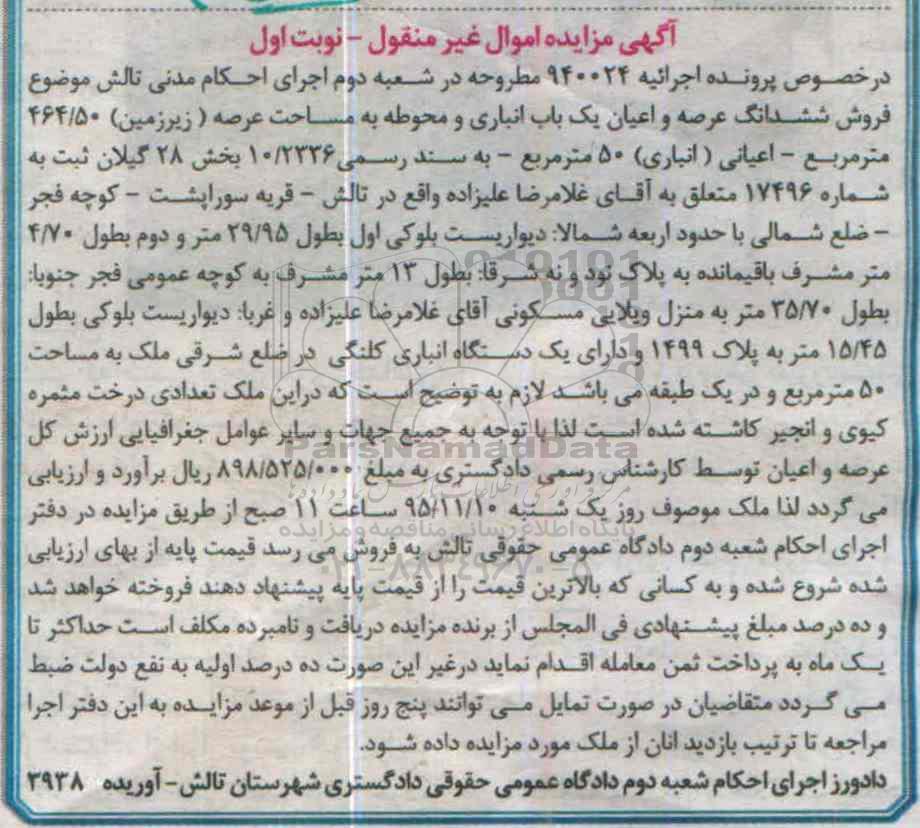 آگهی مزایده اموال غیر منقول - نوبت اول
درخصوص پرونده اجرائیه ۹۴۰۰۲۴ مطروحه در شعبه دوم اجرای احکام مدنی تالش موضوع
فروش ششدانگ عرصه و اعیان یک باب انباری و محوطه به مساحت عرصه ( زیرزمین) ۴۶۴/۵۰
مترمربع - اعیانی ( انباری) ۵۰ مترمربع - به سند رسمی ۱۰/۲۳۳۶ بخش ۲۸ گیلان ثبت به
شماره ۱۷۴۹۶ متعلق به آقای غلامرضا علیزاده واقع در تالش - قریه سوراپشت - کوچه فجر
- ضلع شمالی با حدود اربعه شمالا: دیواریست بلوکی اول بطول ۲۹/۹۵ متر و دوم بطول ۴/۷۰
متر مشرف باقیمانده به پلاک نود و نه شرقا: بطول ۱۳ متر مشرف به کوچه عمومی فجر جنوبا:
بطول ۳۵/۷۰ متر به منزل ویلایی مسکونی آقای غلامرضا علیزاده و غربا: دیواریست بلوکی بطول
۱۵/۴۵ متر به پلاک ۱۴۹۹ و دارای یک دستگاه انباری کلنگی در ضلع شرقی ملک به مساحت
۵۰ مترمربع و در یک طبقه می باشد لازم به توضیح است که دراین ملک تعدادی درخت مثمره
کیوی و انجیر کاشته شده است لذا با توجه به جمیع جهات و سایر عوامل جغرافیایی ارزش کل
عرصه و اعیان توسط کارشناس رسمی دادگستری به مبلغ ۸۹۸/۵۲۵/۰۰۰ ریال برآورد و ارزیابی
می گردد لذا ملک موصوف روز یک شنبه ۹۵/۱۱/۱۰ ساعت ۱۱ صبح از طریق مزایده در دفتر
اجرای احکام شعبه دوم دادگاه عمومی حقوقی تالش به فروش می رسد قیمت پایه از بهای ارزیابی
شده شروع شده و به کسانی که بالاترین قیمت را از قیمت پایه پیشنهاد دهند فروخته خواهد شد
و ده درصد مبلغ پیشنهادی فی المجلس از برنده مزایده دریافت و نامبرده مکلف است حداکثر تا
یک ماه به پرداخت ثمن معامله اقدام نماید درغیر این صورت ده درصد اولیه به نفع دولت ضبط
می گردد متقاضیان در صورت تمایل می توانند پنج روز قبل از موعد مزایده به این دفتر اجرا
مراجعه تا ترتیب بازدید انان از ملک مورد مزایده داده شود.
دادورز اجرای احکام شعبه دوم دادگاه عمومی حقوقی دادگستری شهرستان تالش- آوریده ۳۹۳۸
ParsNamadData
پایگاه اطلاع رسانی مناقصه و مزایده
۰۲۱-۸۸۳۴۹۶۷۰-۵